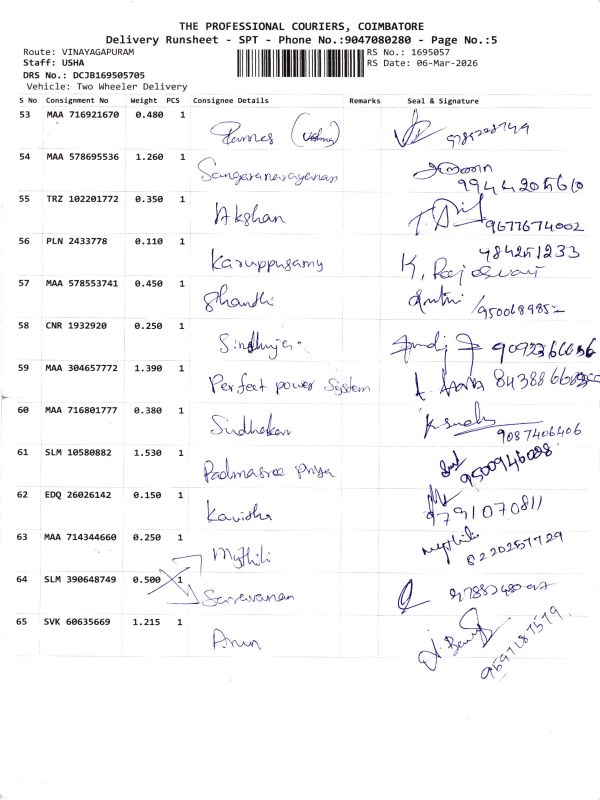 THE PROFESSIONAL COURIERS, COIMBATORE
Delivery Runsheet - SPT - Phone No.:9047080280 - Page No.:5
Route: VINAYAGAPURAM RS No.: 1695057
Staff: USHA RS Date: 06-Mar-2026
DRS No.: DCJB169505705
Vehicle: Two Wheeler Delivery
S No Consignment No Weight PCS Consignee Details Remarks Seal & Signature
53 MAA 716921670 0.480 1
54 MAA 578695536 1.260 1 Sangaranarayanan
9944205610
55 TRZ 102201772 0.350 1 Akshan 9677674002
56 PLN 2433778 0.110 1 Karuppusamy K. Rajeswari
57 MAA 578553741 0.450 1 Shanthi
58 CNR 1932920 0.250 1 Sindhuja
59 MAA 304657772 1.390 1 Perfect power System
60 MAA 716801777 0.380 1 Sudhakan
9087406406
61 SLM 10580882 1.530 1 Padmasree Priya
62 EDQ 26026142 0.150 1 Kavisha 9791070811
63 MAA 714344660 0.250 1 Mythili Mythili
8220257729
64 SLM 390648749 0.500 1 Saravanan
65 SVK 60635669 1.215 1 Arun
9597187579